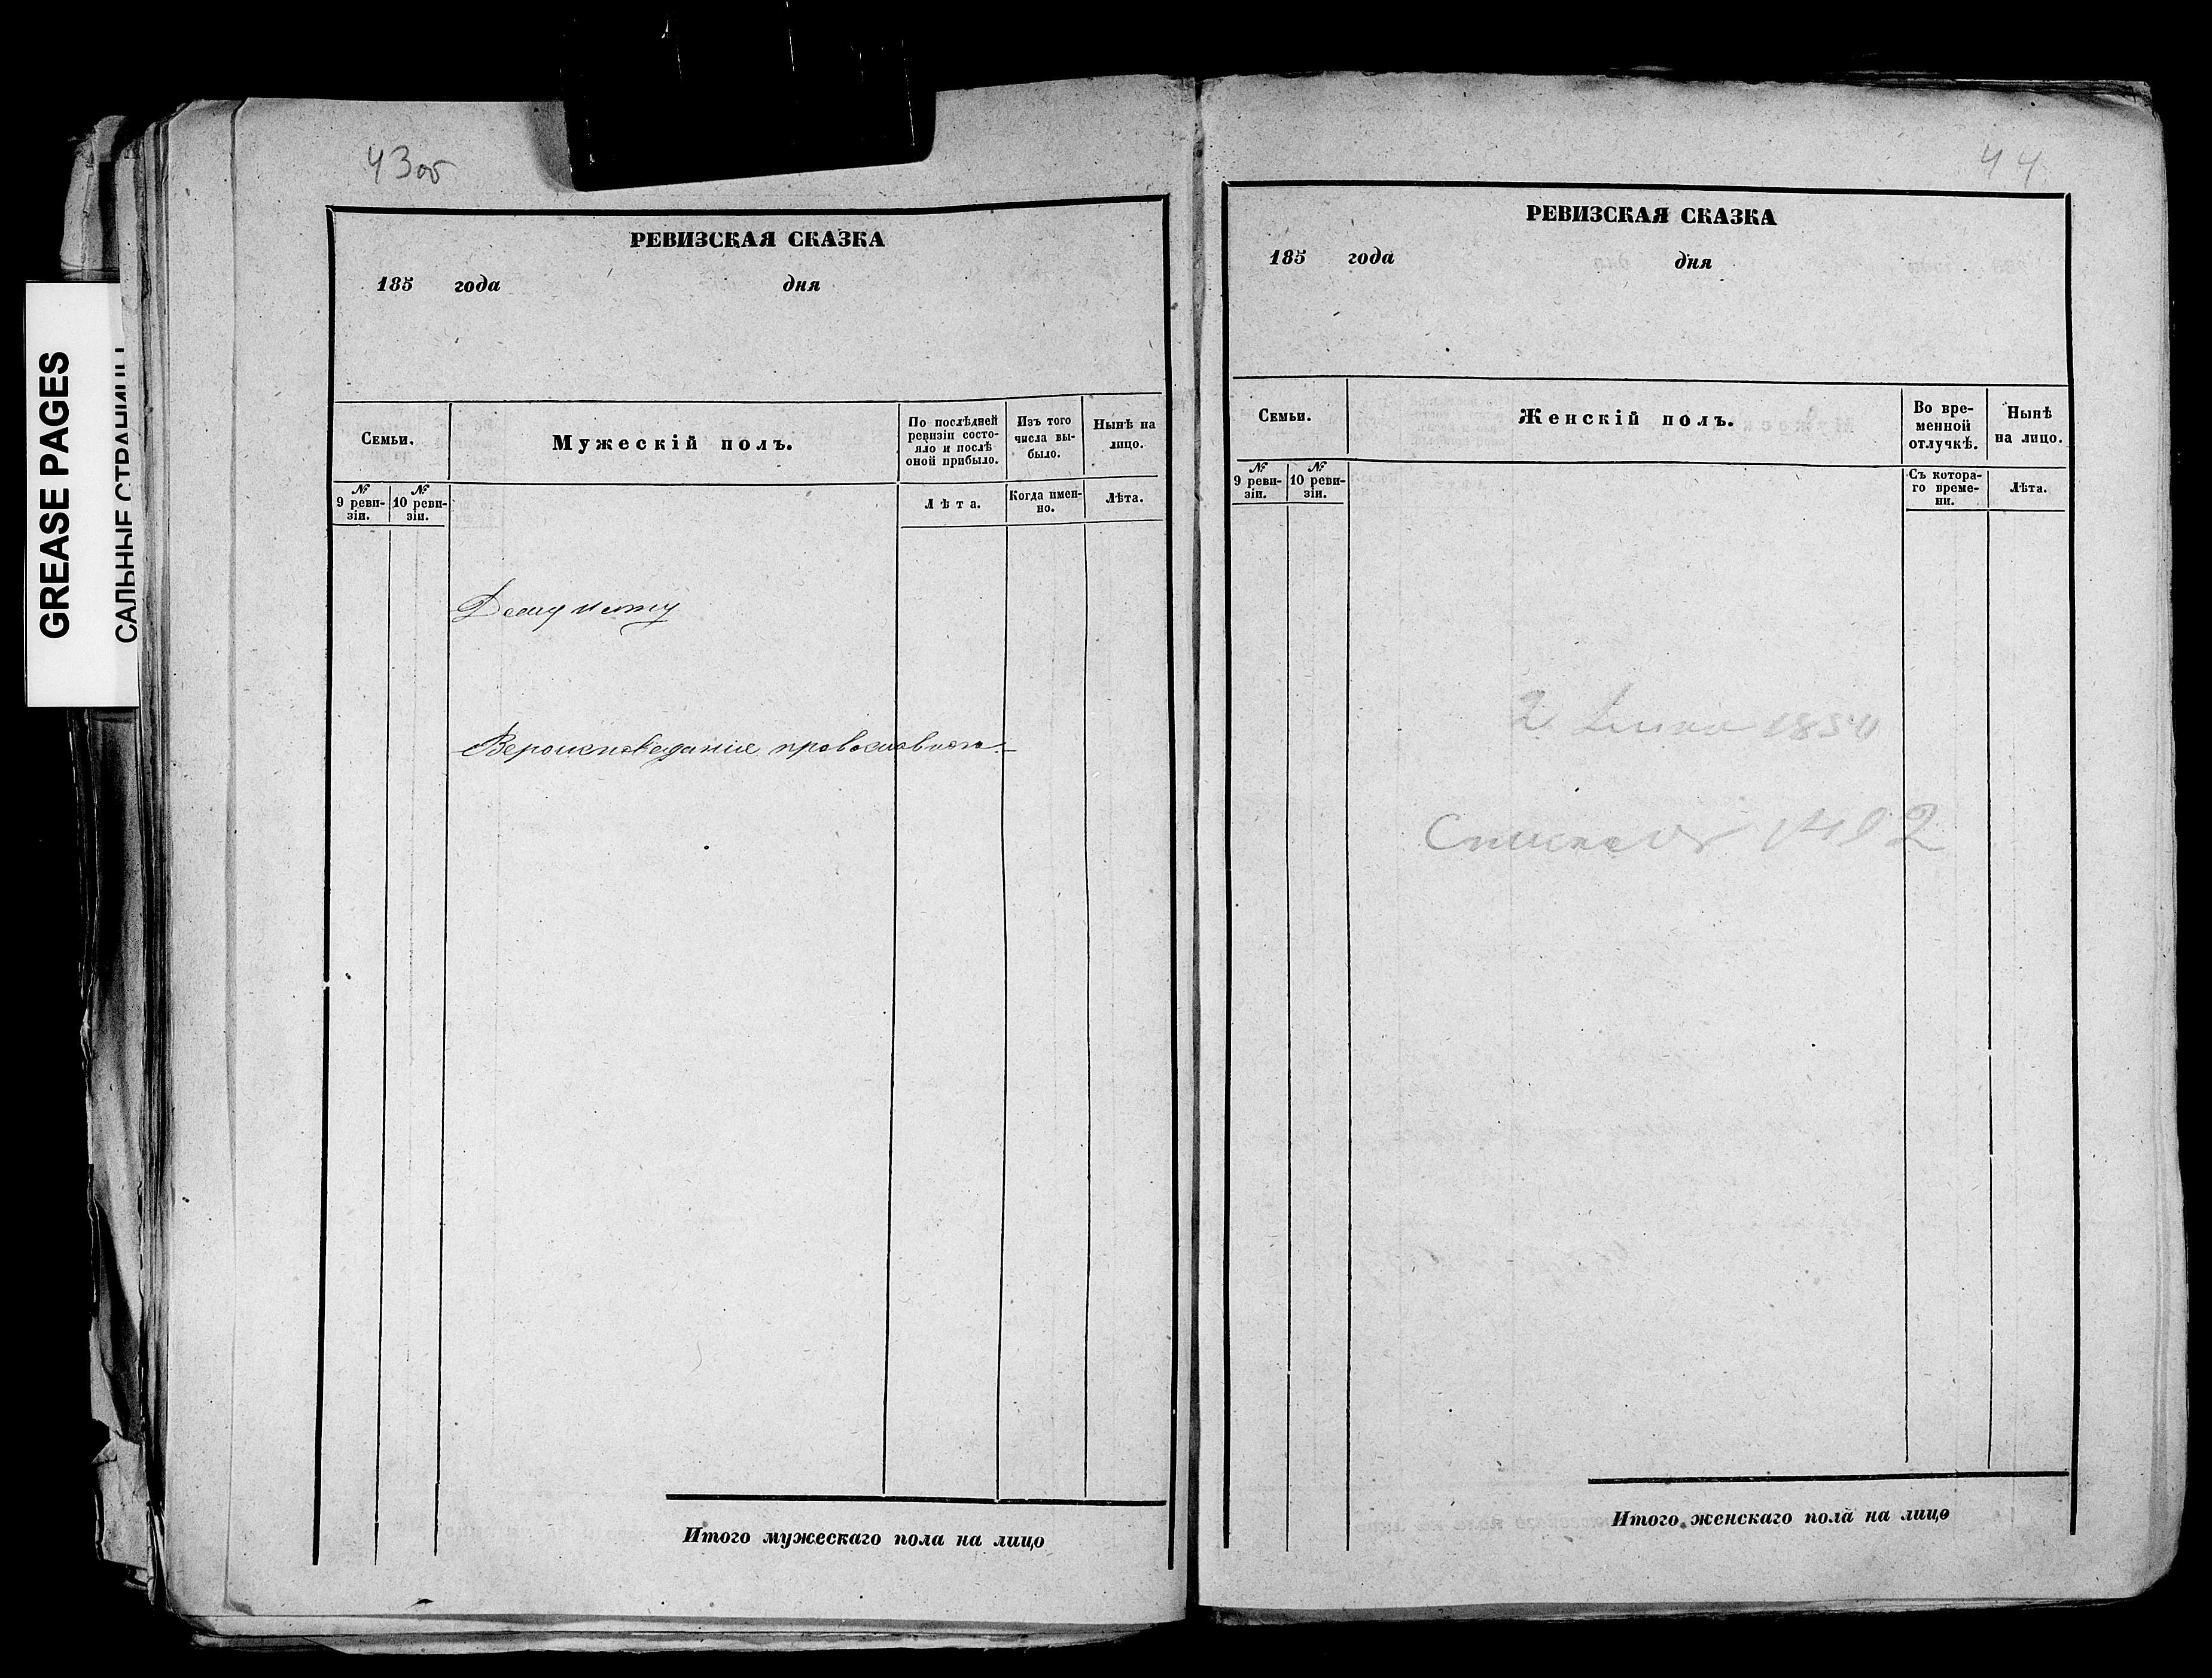 GREASE PAGES
САЛЬНЫЕ СТРАНИЦЫ
43об
РЕВИЗСКАЯ СКАЗКА
185 года дня
Семьи.
Мужескій полъ.
По послѣдней
ревизіи состо-
яло и послѣ
оной прибыло.
Изъ того
числа вы-
было.
Нынѣ на
лицо.
№
9 реви-
зіи.
№
10 реви-
зіи.
Лѣта.
Когда имен-
но.
Лѣта.
Вероисповеданія православнаго.
Итого мужескаго пола на лицо
44
РЕВИЗСКАЯ СКАЗКА
185 года дня
Семьи.
Женскій полъ.
Во вре-
менной
отлучкѣ.
Нынѣ
на лицо.
№
9 реви-
зіи.
№
10 реви-
зіи.
Съ котора-
го време-
ни.
Лѣта.
2
Итого женскаго пола на лицо